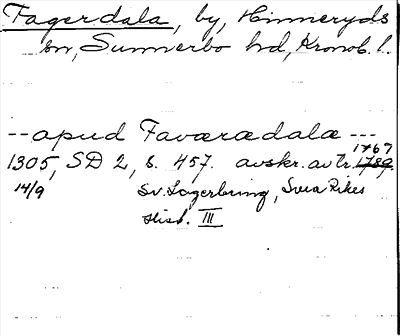 Fagerdala, by, Hinneryds
sn, Sunnerbo hd, Kronob. l.
-- apud Faværædalæ ---
1305, SD 2, s. 457. avskr. av tr. 1789 1767
14/9 Sv. Lagerbring, Svea Rikes
Hist. III